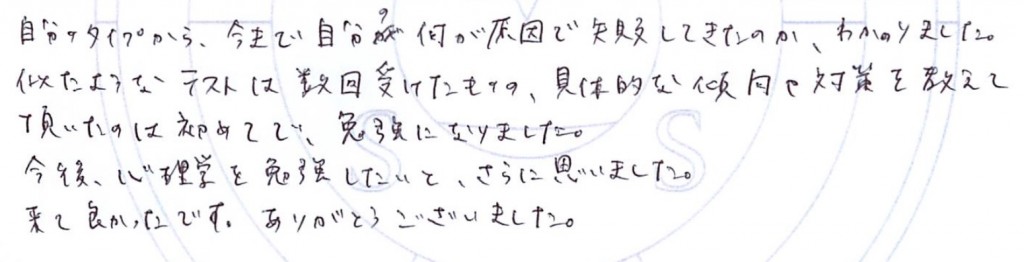 自分のタイプから、今まで自分の何が原因で失敗してきたのか、わかりました。
似たようなテストは数回受けたものの、具体的な傾向や対策を教えて
頂いたのは初めてで、勉強になりました。
今後、心理学を勉強したいと、さらに思いました。
来て良かったです。ありがとうございました。
S S